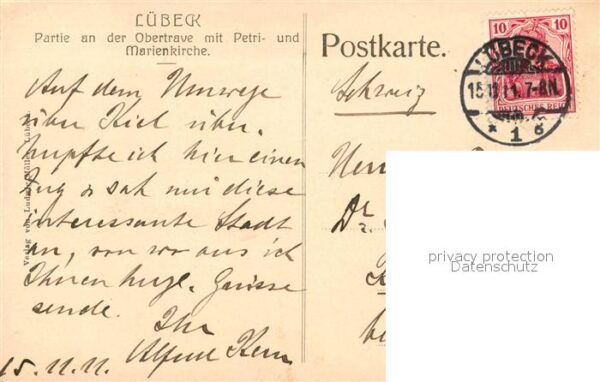 LÜBECK
Partie an der Obertrave mit Petri- und
Marienkirche.
Postkarte.
10 10
DEUTSCHES REICH
LÜBECK
15.11.11. 7-8N.
* 1 d
Schweiz
Auf dem Umwege
über Kiel über-
hupfte ich hier einen
Zug & sah mir diese
interessante Stadt
an, von wo aus ich
Ihnen herzl. Grüsse
sende.
Ihr
Alfred Kern
15.11.11.
Herrn
Dr.
Verlag von Ludw. Möller, Lübeck
privacy protection
Datenschutz